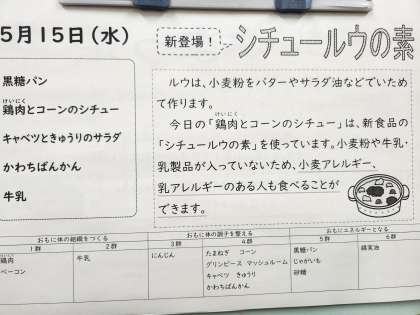 5月15日(水)
新登場!
シチュールウの素
黒糖パン
けいにく
鶏肉とコーンのシチュー
キャベツときゅうりのサラダ
かわちばんかん
牛乳
ルウは、小麦粉をバターやサラダ油などでいため
て作ります。
けいにく
今日の「鶏肉とコーンのシチュー」は、新食品の
「シチュールウの素」を使っています。小麦粉や牛乳・
乳製品が入っていないため、小麦アレルギー、
乳アレルギーのある人も食べることが
できます。
おもに体の組織をつくる
おもに体の調子を整える
おもにエネルギーとなる
1群
2群
3群
4群
5群
6群
けいにく
鶏肉
ベーコン
牛乳
にんじん
たまねぎ コーン
グリンピース マッシュルーム
キャベツ きゅうり
かわちばんかん
黒糖パン
じゃがいも
砂糖
鶏実油